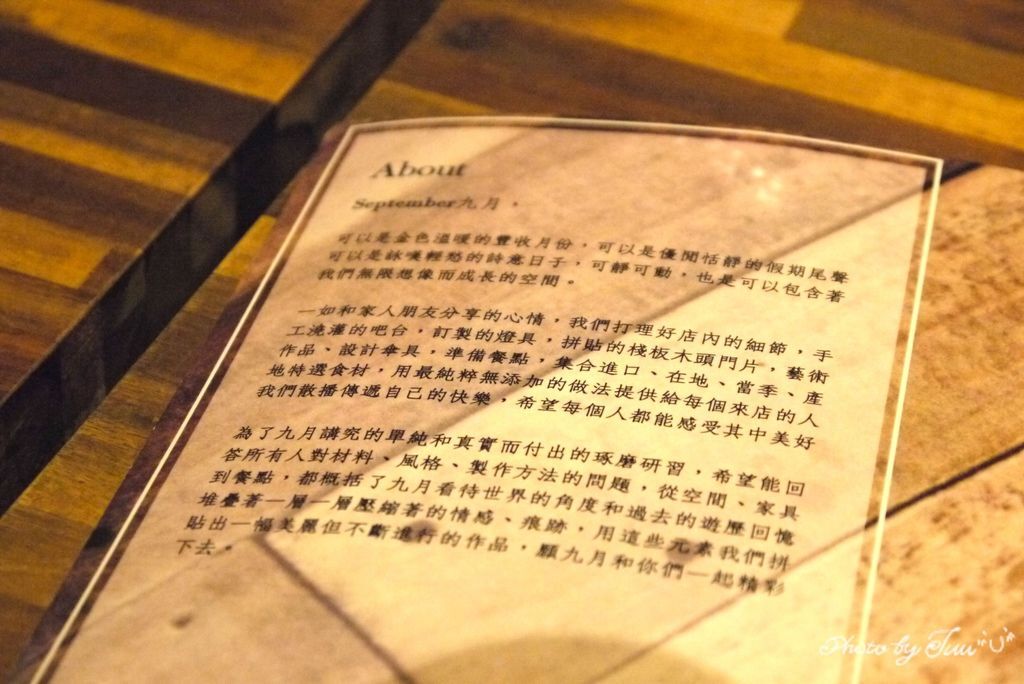 About
September九月,
可以是金色溫暖的豐收月份,可以是優閒恬靜的假期尾聲
可以是詠嘆輕愁的詩意日子,可靜可動,也是可以包含著
我們無限想像而成長的空間。
一如和家人朋友分享的心情,我們打理好店內的細節,手
工澆灌的吧台,訂製的燈具,拼貼的棧板木頭門片,藝術
作品、設計傘具,準備餐點,集合進口、在地、當季、產
地特選食材,用最純粹無添加的做法提供給每個來店的人
我們散播傳遞自己的快樂,希望每個人都能感受其中美好
為了九月講究的單純和真實而付出的琢磨研習,希望能回
答所有人對材料、風格、製作方法的問題,從空間、家具
到餐點,都概括了九月看待世界的角度和過去的遊歷回憶
堆疊著一層一層壓縮著的情感、痕跡,用這些元素我們拼
貼出一幅美麗但不斷進行的作品,願九月和你們一起精彩
下去。
Photo by Juu